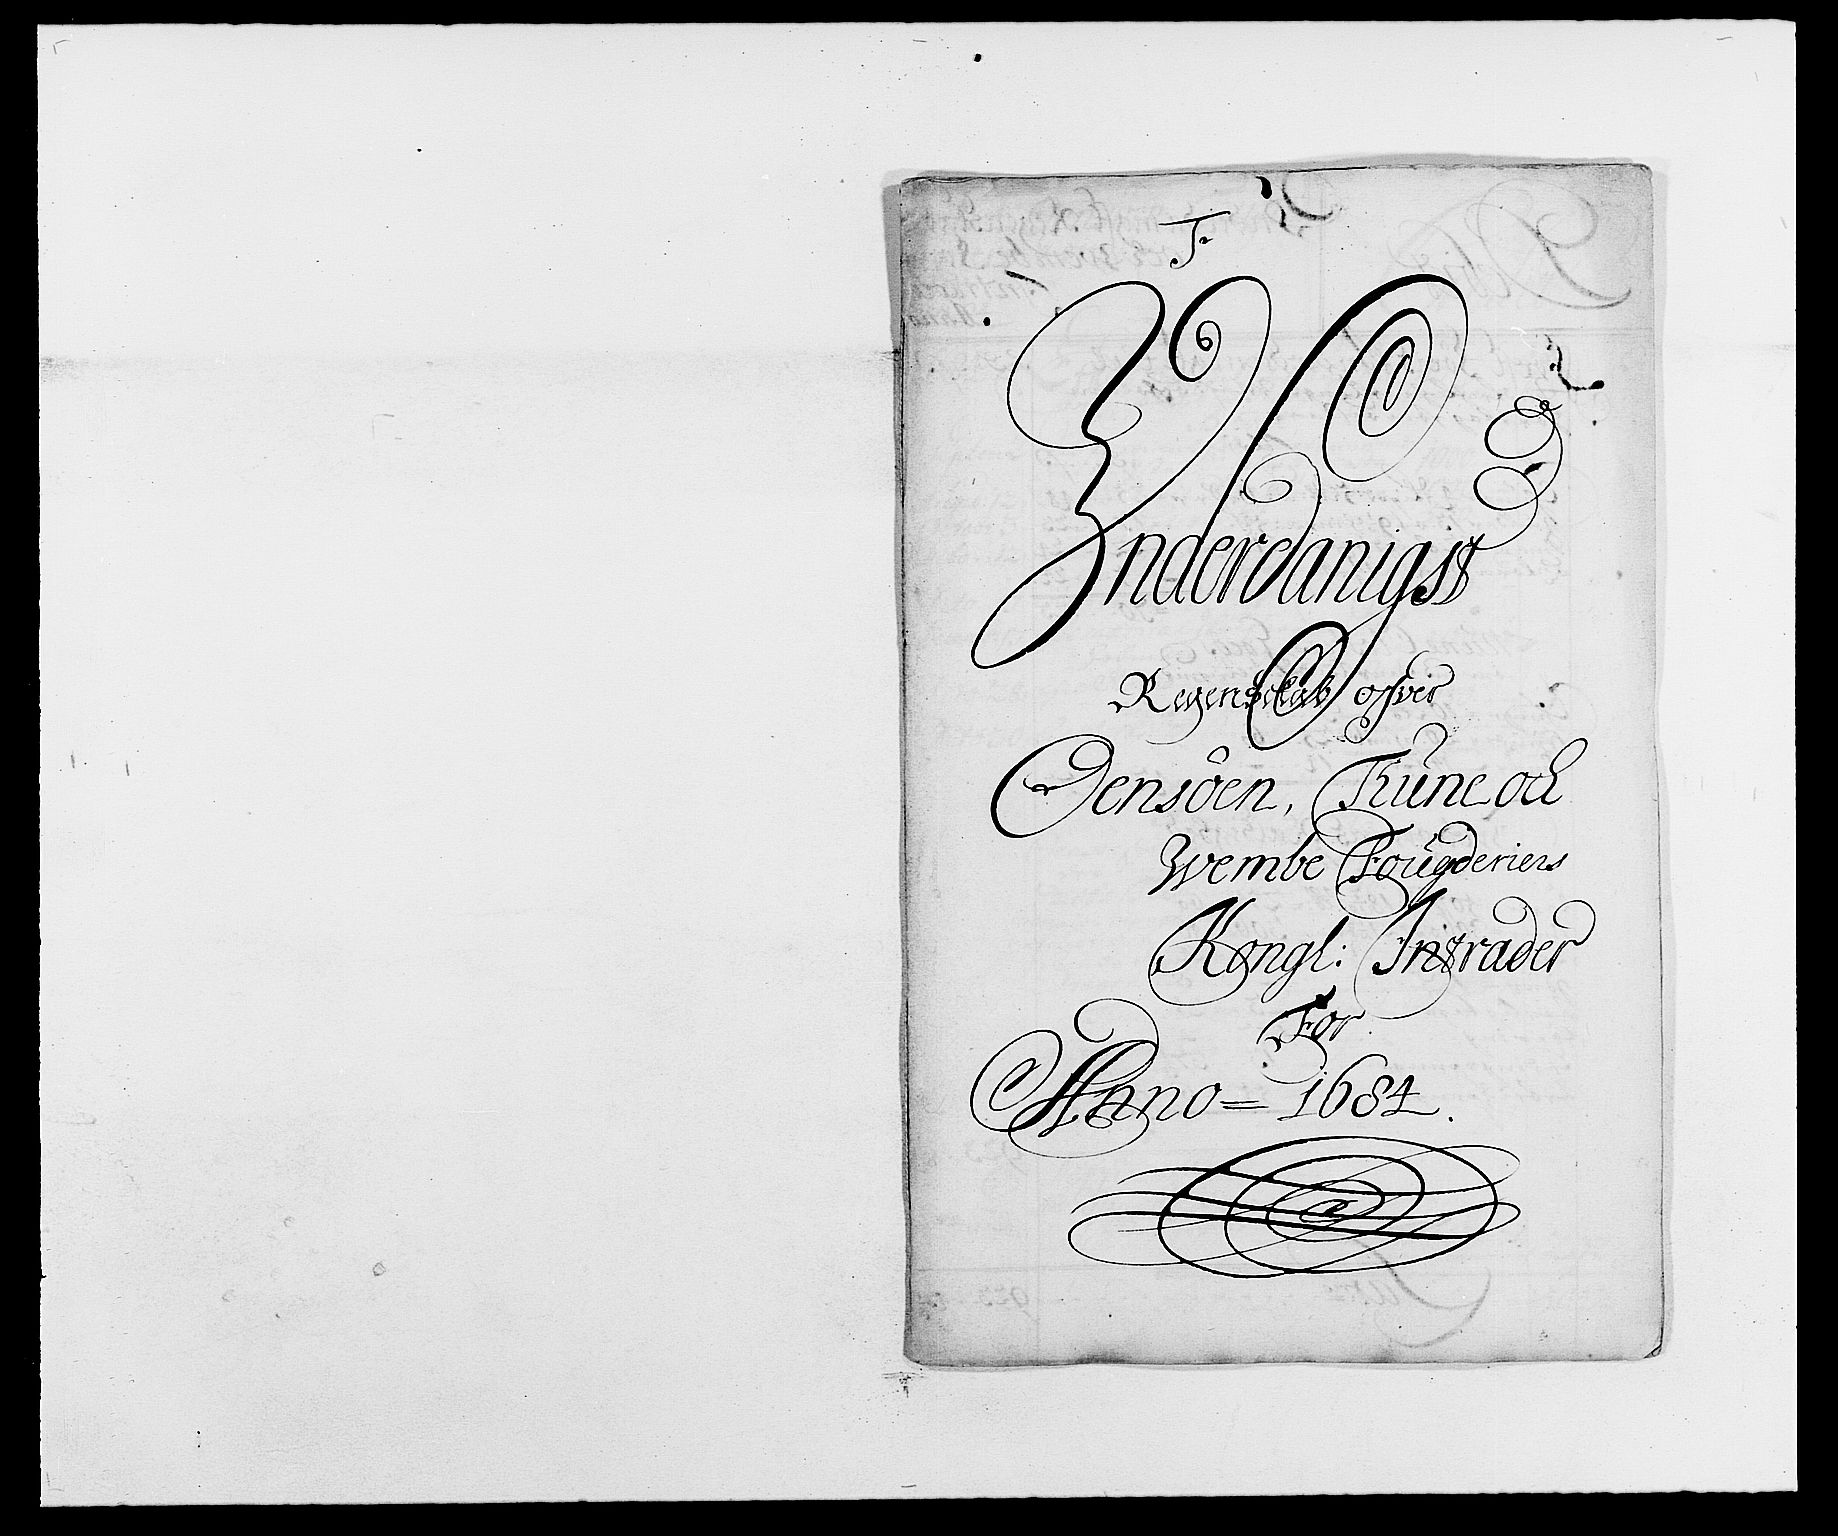 F
Vnderdanigst
Regenskab offver
Oensöen, Tüne och
Wembe Fougderiens
Kongl: Intrader
For
Anno = 1684.